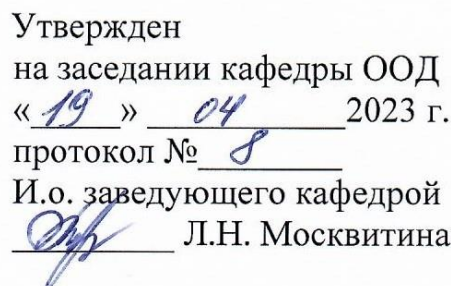 Утвержден
на заседании кафедры ООД
« 19 » 04 2023 г.
протокол № 8
И.о. заведующего кафедрой
Л.Н. Москвитина